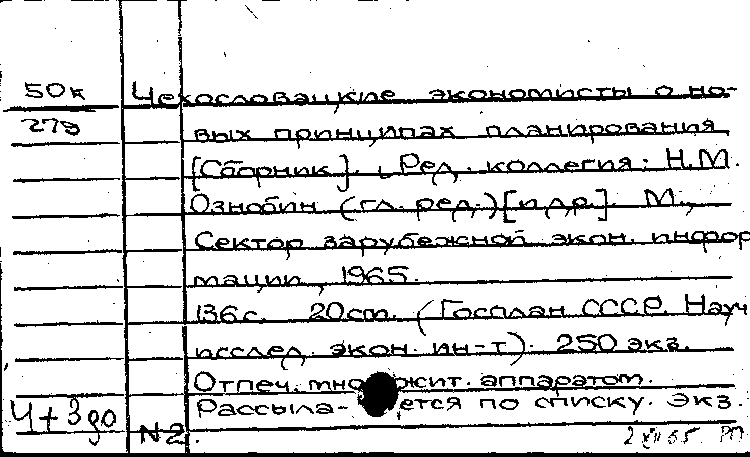 50к Чехословацкие экономисты о но-
279 вых принципах планирования
[Сборник]. Ред. коллегия: Н.М.
Ознобин (гл. ред.) [и др.] М.,
Сектор зарубежной экон. инфор
мации, 1965.
136 с. 20 cm. (Госплан СССР. Науч
исслед. экон. ин-т). 250 экз.
Отпеч. множит. аппаратом.
Рассыла- ется по списку. Экз.
Ч+З до N2.
2 XII 65. РП